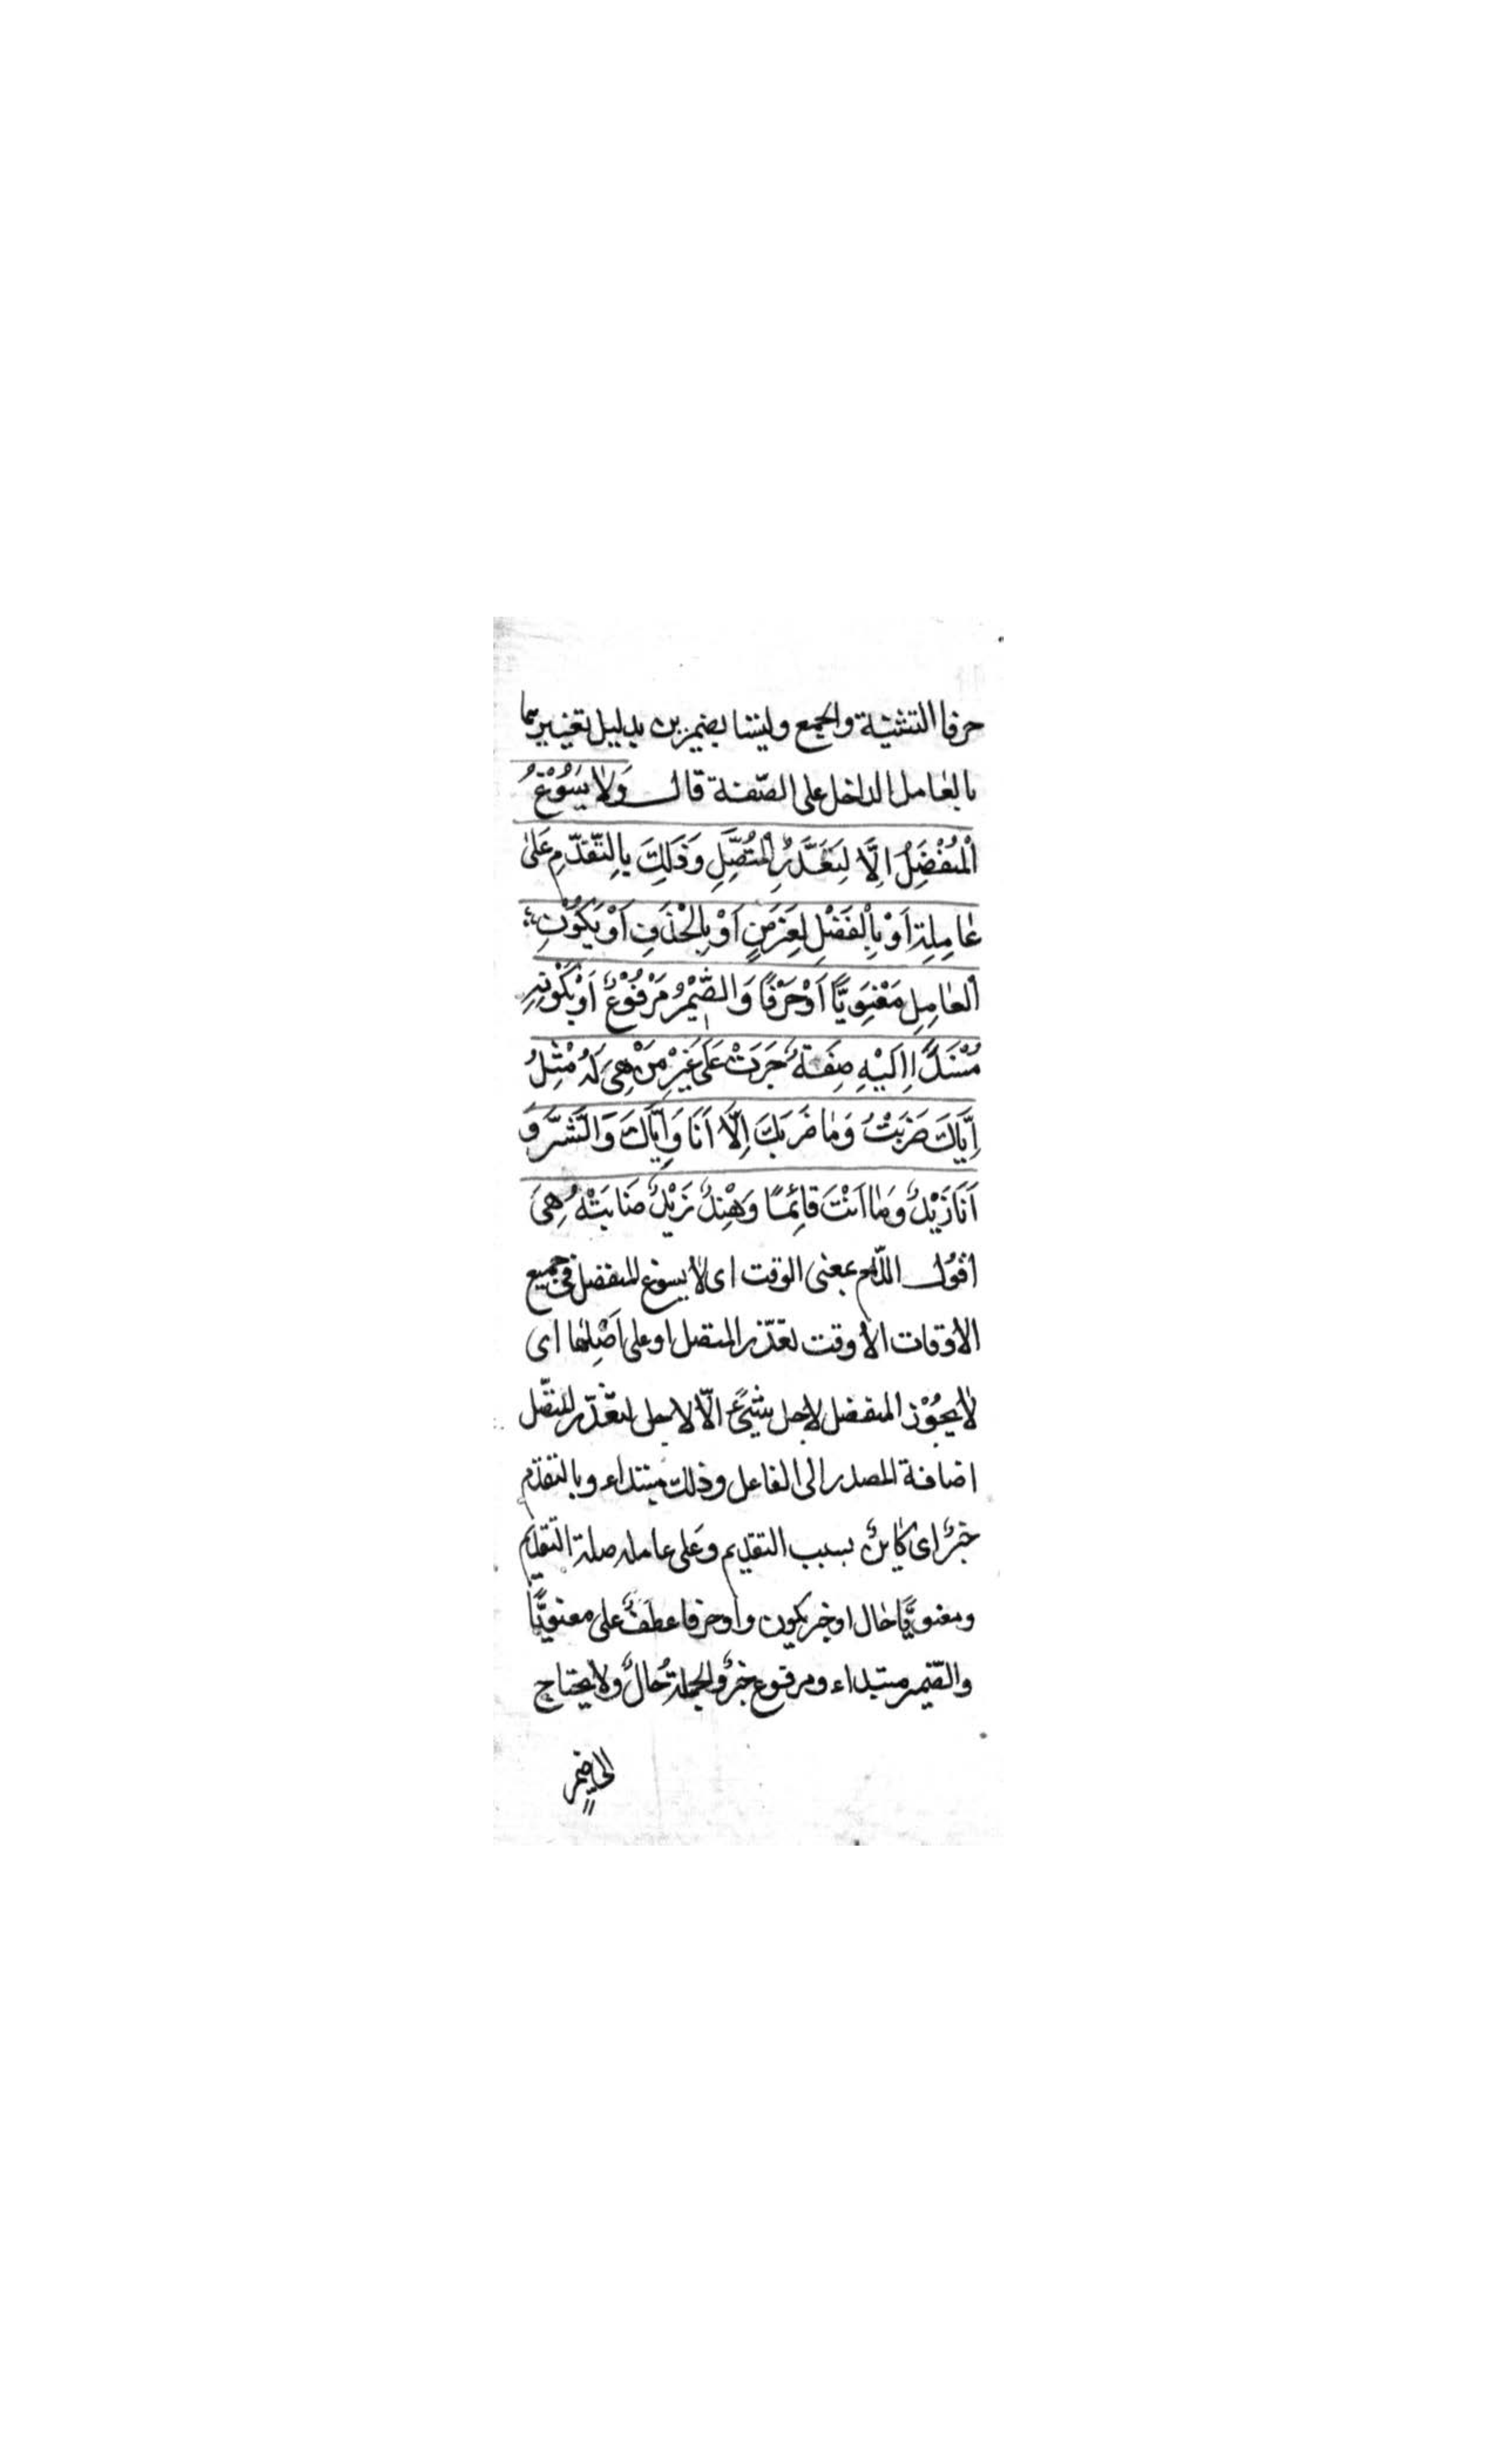 حرفا التثنية والجمع وليستا بضميرين بدليل تغييرهما
بالعامل الداخل على الصّفة قال وَلاٰ يَسُوْغُ
اَلْمُنْفَصِلُ اِلَّا لِتَعَذُّرِ الْمُتَّصِلِ وَذٰلِكَ بِالتَّقَدُّمِ عَلىٰ
عٰامِلِهِ اَوْ بِالْفَصْلِ لِغَرَضٍ اَوْ بِالْحَذْفِ اَوْ بِكَوْنِ
اَلْعٰامِلِ مَعْنَوِيًّا اَوْ حَرْفًا وَالضَّمِيْرُ مَرْفُوْعٌ اَوْ بِكَوْنِهِ
مُسْنَدًا اِلَيْهِ صِفَةٌ جَرَتْ عَلىٰ غَيْرِ مَنْ هِىَ لَهُ مِثْلُ
اِيَّاكَ ضَرَبْتُ وَمٰا ضَرَبَكَ اِلَّا اَنَا وَاِيَّاكَ وَالشَّرَّ وَ
اَنَا زَيْدٌ وَمٰا اَنْتَ قٰائِمًا وَهِنْدٌ زَيْدٌ ضَارِبَتْهُ هِىَ
اقول اللّام بمعنى الوقت اى لاٰ يسوغ المنفصل فى جميع
الأوقات الاّ وقت تعذّر المتصل او على اَصْلِهٰا اى
لاٰ يجُوْز المنفصل لاجل شَىْءٍ الّا لاجل تعذّر المتّصل
اضافة المصدر الى الفاعل وذلك مبتداء وبالتقدّم
خبرٌ اى كٰاينٌ بسبب التقديم وعَلى عامله صلة التّقدّم
ومعنويًّا حٰال او خبر يكون واَو حرفا عطفٌ على معنويًّا
والضّمير مبتداء ومرفوع خبرٌ والجملة حٰالٌ ولاٰ يحتاج